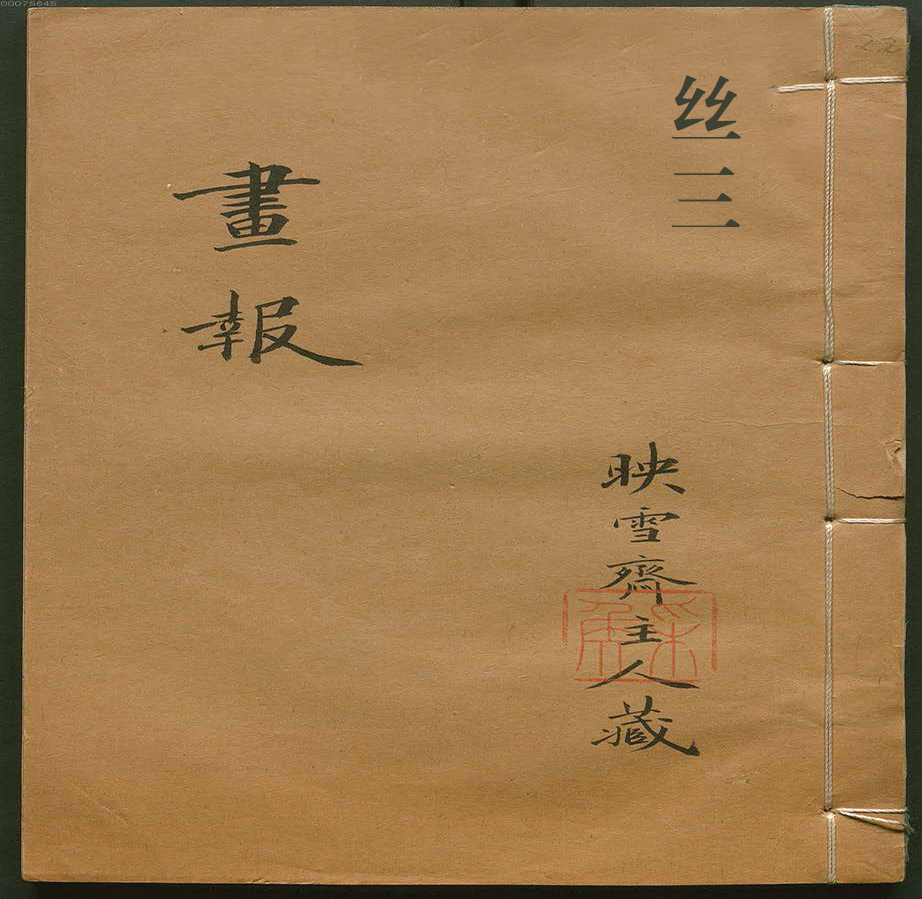 00075645
丝三
映雪齋主人藏
畫報